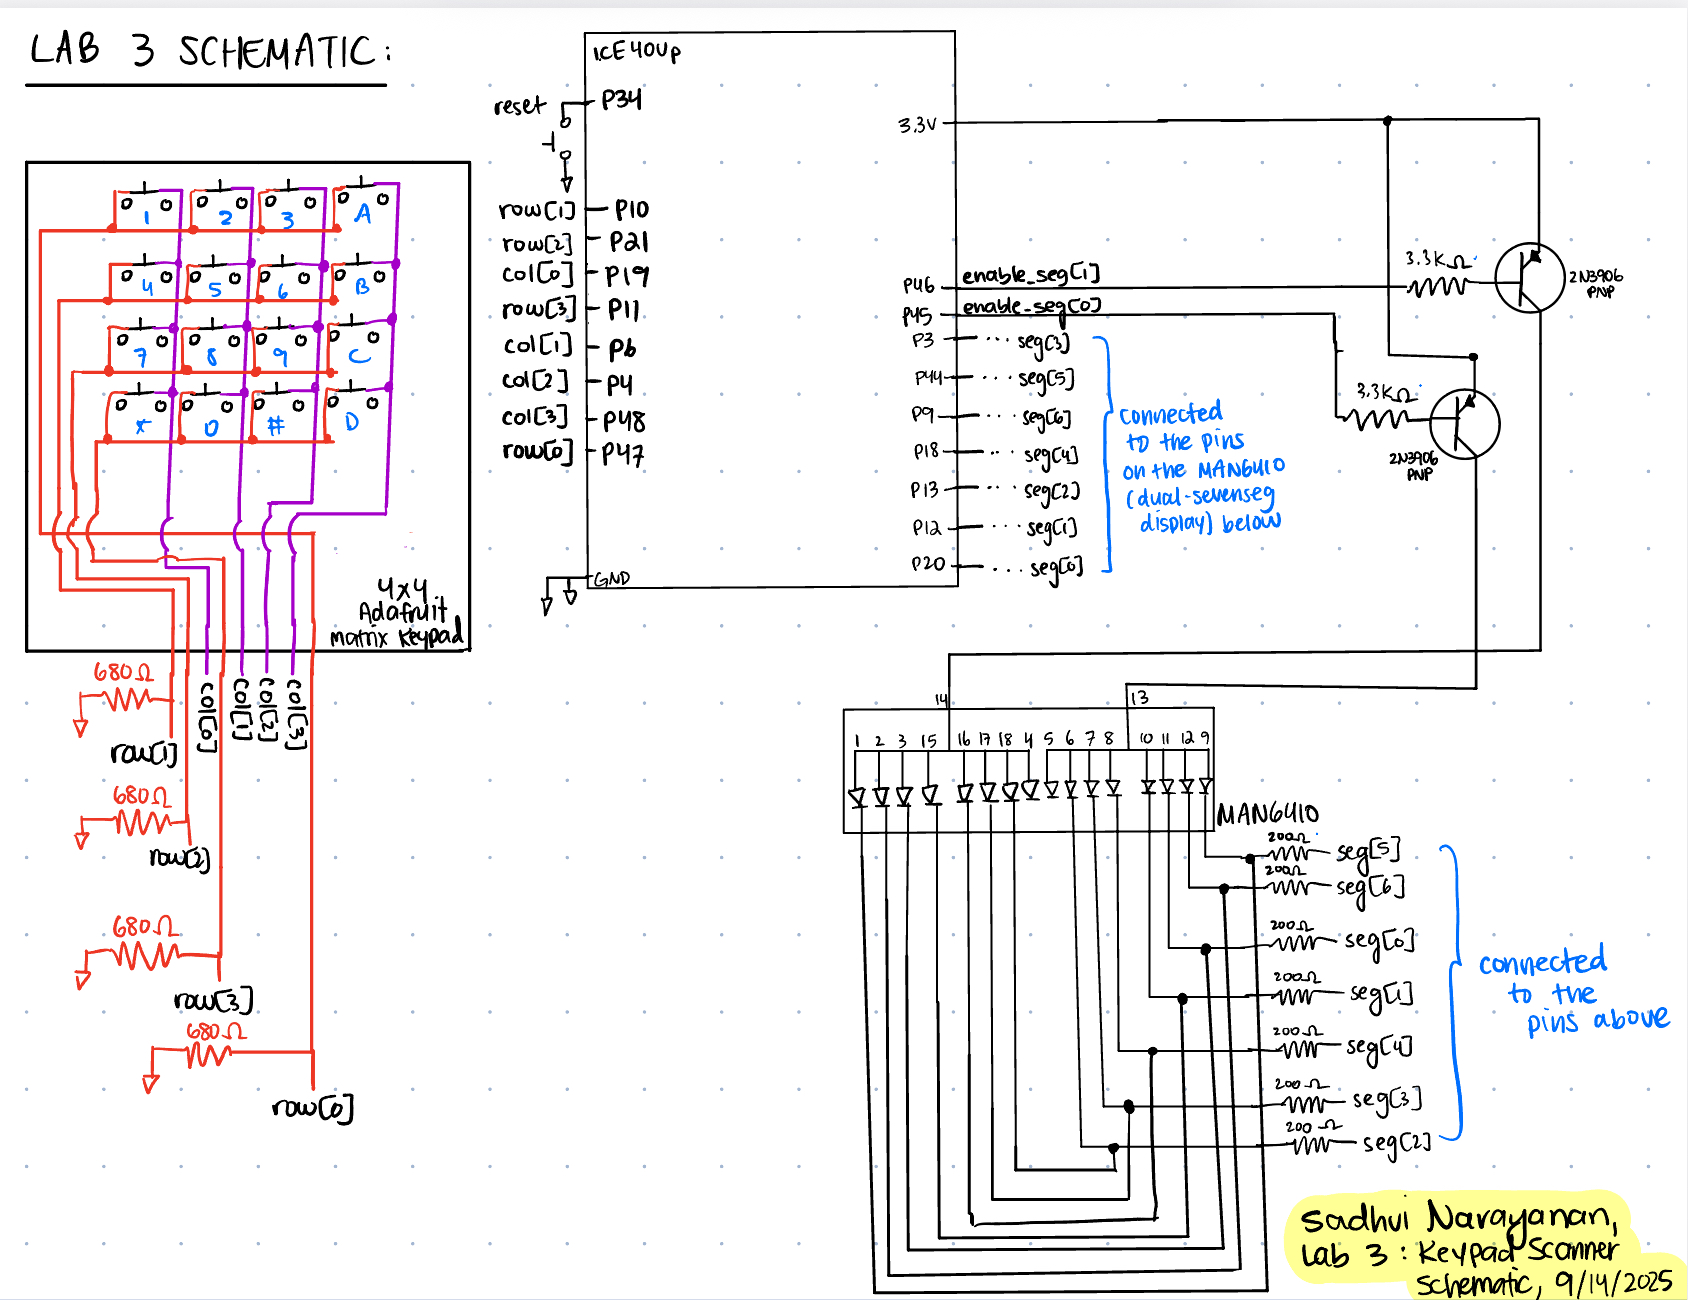 LAB 3 SCHEMATIC:
ICE40Up
reset
P34
3.3V
row[1] P10
row[2] P21
col[0] P19
row[3] P11
col[1] P6
col[2] P4
col[3] P48
row[0] P47
GND
P46 enable_seg[1]
P45 enable_seg[0]
P3 ... seg[3]
P44 ... seg[5]
P9 ... seg[6]
P18 ... seg[4]
P13 ... seg[2]
P12 ... seg[1]
P20 ... seg[0]
connected
to the pins
on the MAN6410
(dual-sevenseg
display) below
3.3KΩ
2N3906
PNP
3.3KΩ
2N3906
PNP
1 2 3 A
4 5 6 B
7 8 9 C
* 0 # D
4x4
Adafruit
matrix keypad
680Ω
row[1]
col[0]
col[1]
col[2]
col[3]
680Ω
row[2]
680Ω
row[3]
680Ω
row[0]
14 13
1 2 3 15 16 17 18 4 5 6 7 8 10 11 12 9
MAN6410
200Ω seg[5]
200Ω seg[6]
200Ω seg[0]
200Ω seg[1]
200Ω seg[4]
200Ω seg[3]
200Ω seg[2]
connected
to the
pins above
Sadhvi Narayanan,
Lab 3: Keypad Scanner
Schematic, 9/14/2025